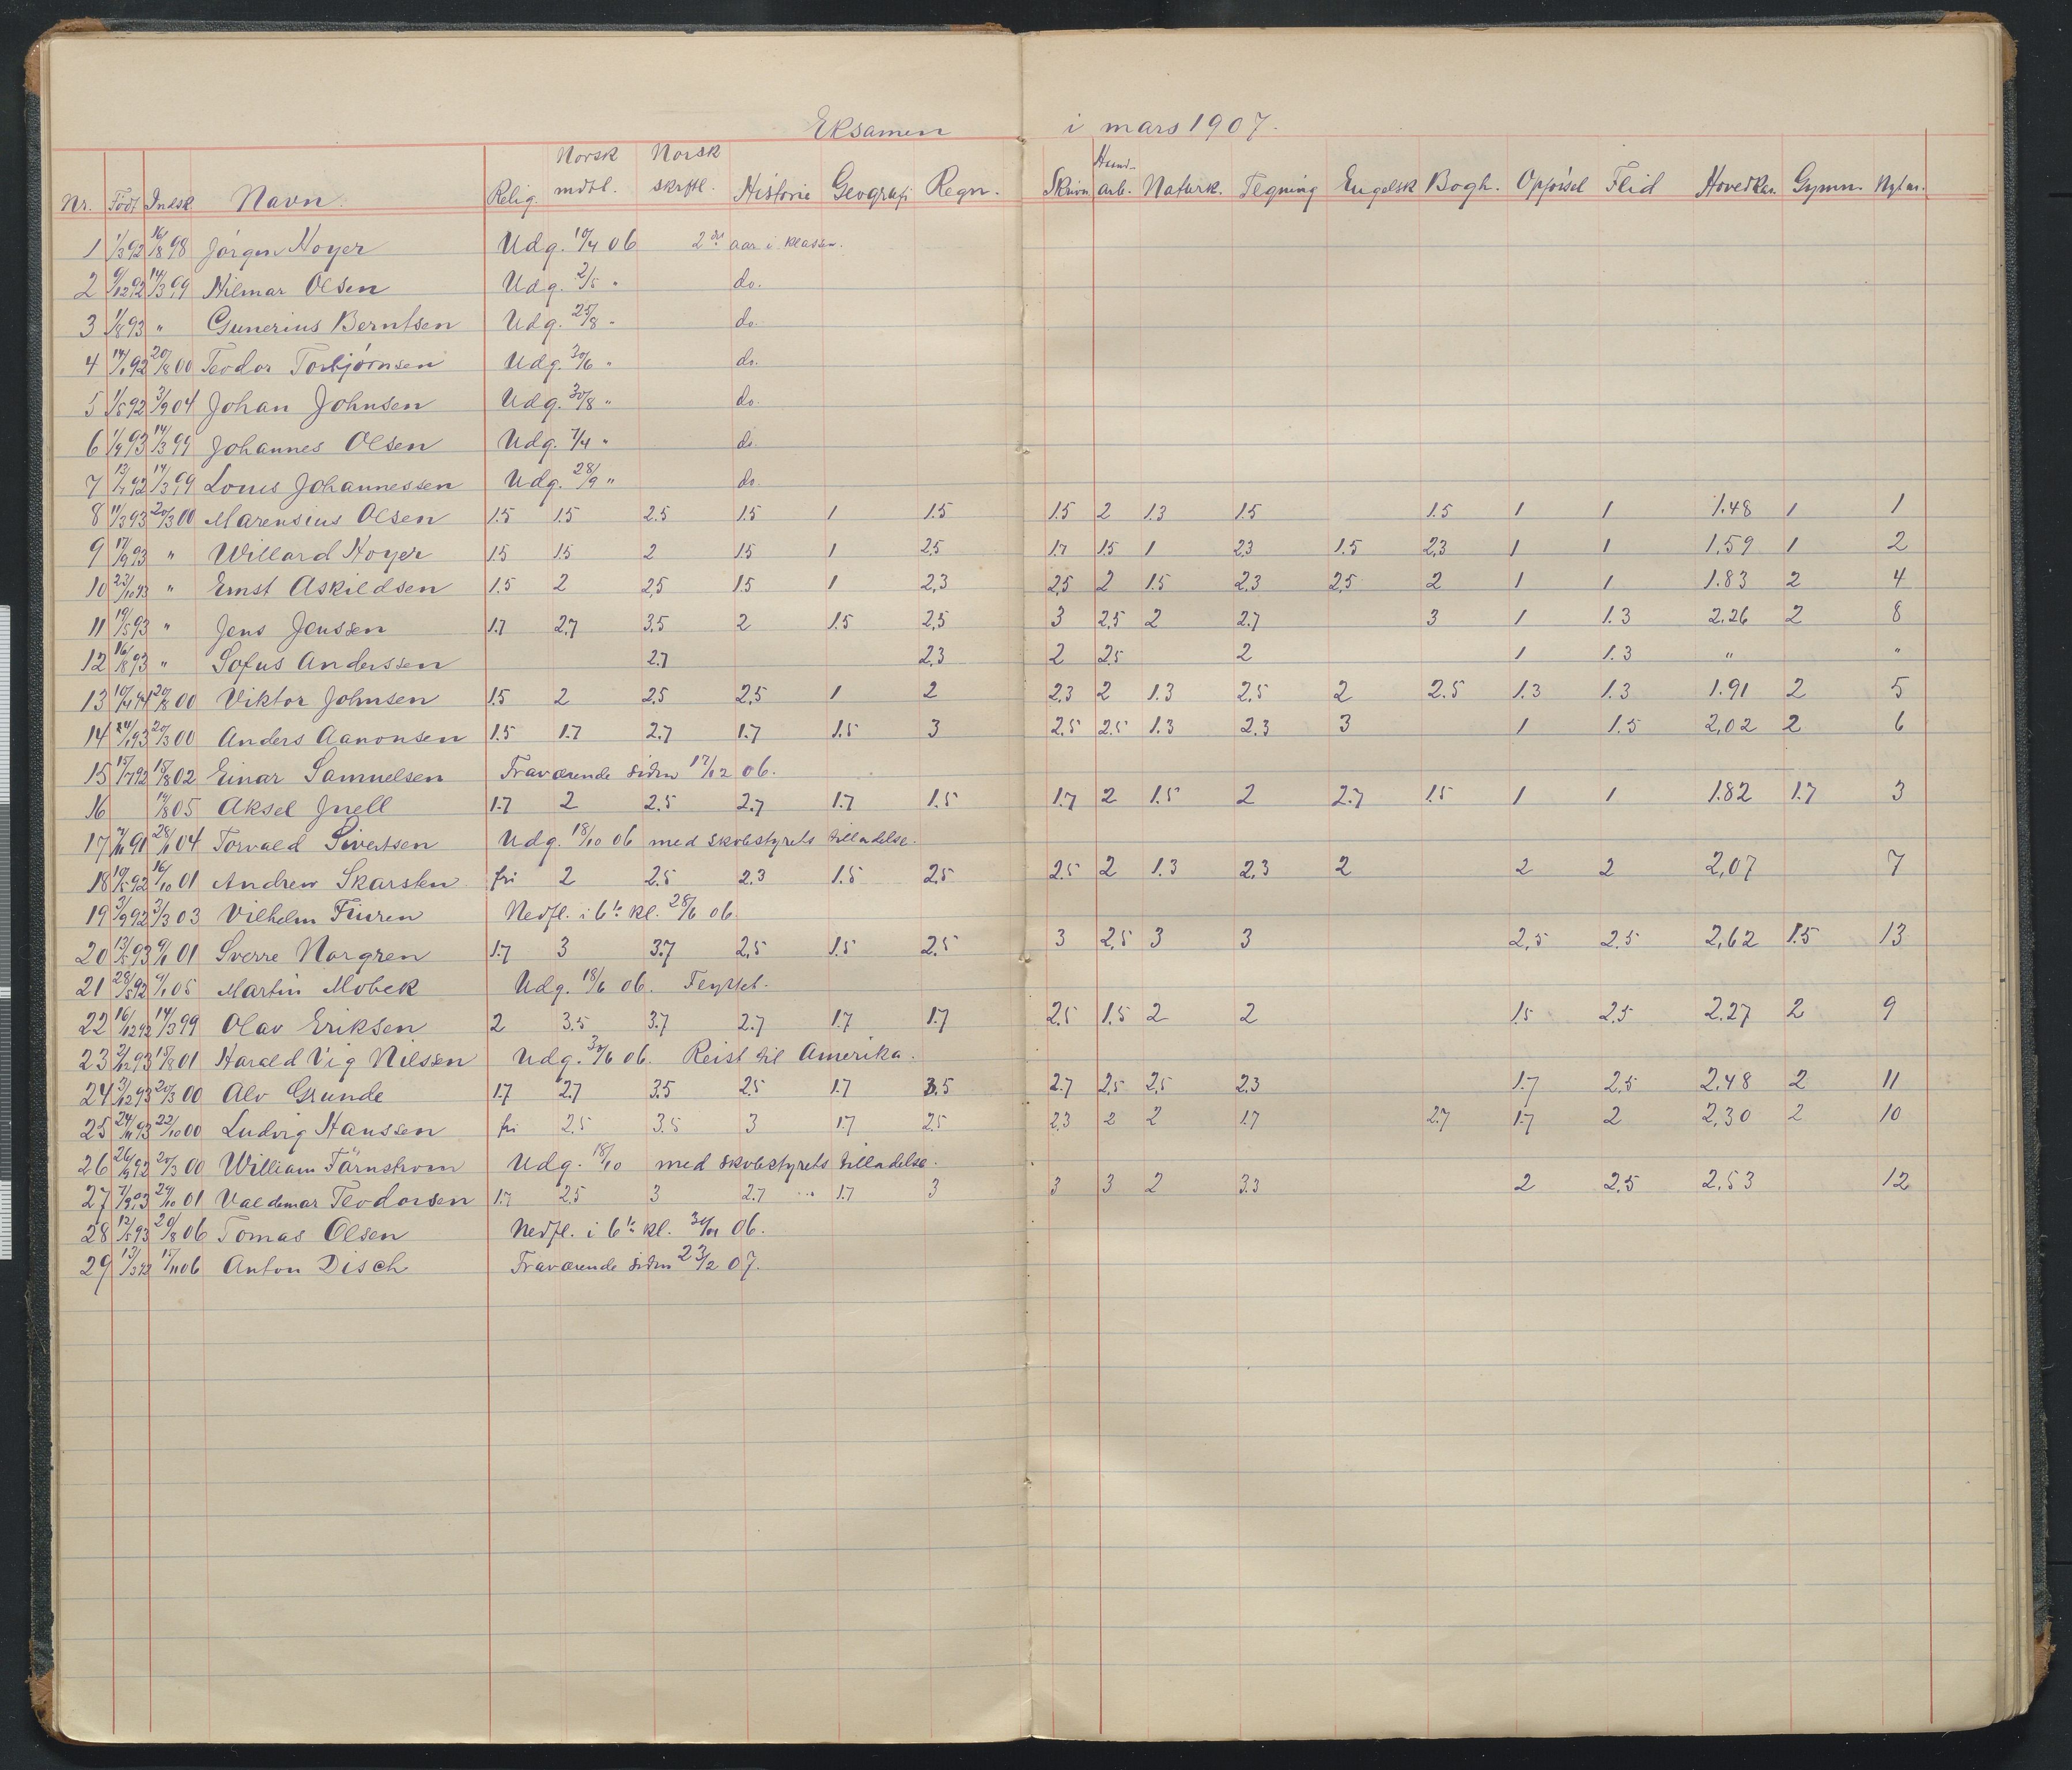 Eksamen i mars 1907.
Nr. Født Indsk. Navn. Relig. Norsk mdtl. Norsk skrftl. Historie Geografi Regn. Skrivn. Haand-arb. Naturk. Tegning Engelsk Bogh. Opførsel Flid Hovedkar. Gymn. Nyt nr.
1 1/3 92 16/8 98 Jørgen Hoyer Udg. 10/4 06 2det aar i klassen.
2 9/12 92 14/3 99 Hilmar Olsen Udg. 2/5 " do.
3 1/8 93 " Gunerius Berntsen Udg. 25/8 " do.
4 14/1 92 20/8 00 Teodor Torbjørnsen Udg. 30/6 " do.
5 1/5 92 3/9 04 Johan Johnsen Udg. 30/8 " do.
6 1/9 93 14/3 99 Johannes Olsen Udg. 7/4 " do.
7 13/7 92 14/3 99 Louis Johannessen Udg. 28/9 " do.
8 11/3 93 20/3 00 Marensius Olsen 1.5 1.5 2.5 1.5 1 1.5 1.5 2 1.3 1.5 1.5 1 1 1.48 1 1
9 17/9 93 " Willard Hoyer 1.5 1.5 2 1.5 1 2.5 1.7 1.5 1 2.3 1.5 2.3 1 1 1.59 1 2
10 23/10 93 " Ernst Askildsen 1.5 2 2.5 1.5 1 2,3 2,5 2 1.5 2.3 2.5 2 1 1 1.83 2 4
11 19/5 93 " Jens Jenssen 1.7 2.7 3.5 2 1.5 2,5 3 2.5 2 2.7 3 1 1.3 2.26 2 8
12 16/8 93 " Sofus Anderssen 2.7 2.3 2 2.5 2 1 1.3 " "
13 10/4 94 20/8 00 Viktor Johnsen 1.5 2 2.5 2.5 1 2 2.3 2 1.3 2.5 2 2.5 1.3 1.3 1.91 2 5
14 24/1 93 20/3 00 Anders Aanonsen 1.5 1.7 2.7 1.7 1.5 3 2.5 2.5 1.3 2.3 3 1 1.5 2,02 2 6
15 15/7 92 18/8 02 Einar Samuelsen Fraværende siden 17/12 06.
16 14/8 05 Aksel Juell 1.7 2 2.5 2.7 1.7 1.5 1.7 2 1.5 2 2.7 1.5 1 1 1.82 1.7 3
17 91 28/11 04 Torvald Sivertsen Udg. 18/10 06 med skolestyrets tilladelse.
18 19/5 92 16/10 01 Andrew Skarsten fri 2 2.5 2.3 1.5 2.5 2.5 2 1.3 2.3 2 2 2 2,07 7
19 3/9 92 3/3 03 Vilhelm Fiuren Nedfl. i 6te kl. 28/6 06.
20 13/5 93 9/1 01 Sverre Norgren 1.7 3 3.7 2.5 1.5 2.5 3 2.5 3 3 2,5 2.5 2,62 1.5 13
21 28/5 92 9/1 05 Martin Mobek Udg. 18/6 06. Flyttet.
22 16/12 92 14/3 99 Olav Eriksen 2 3.5 3.7 2.7 1.7 1.7 2.5 1.5 2 2 1.5 2.5 2.27 2 9
23 2/12 93 18/8 01 Harald Vig Nilssen Udg. 30/6 06. Reist til Amerika.
24 3/12 93 20/3 00 Alv Grunde 1.7 2.7 3.5 2.5 1.7 3.5 2.7 2.5 2.5 2.3 1.7 2.5 2.48 2 11
25 24/11 93 22/10 00 Ludvig Hanssen fri 2.5 3.5 3 1.7 2.5 2.3 2 2 1.7 2.7 1.7 2 2,30 2 10
26 26/9 92 20/3 00 William Tärnstrøm Udg. 18/10 med skolestyrets tilladelse.
27 7/9 93 29/10 01 Valdemar Teodorsen 1.7 2.5 3 2.7 1.7 3 3 3 2 3.3 2 2.5 2.53 12
28 12/5 93 20/8 06 Tomas Olsen Nedfl. i 6te kl. 30/11 06.
29 13/3 92 15/11 06 Anton Disch Fraværende siden 23/2 07.